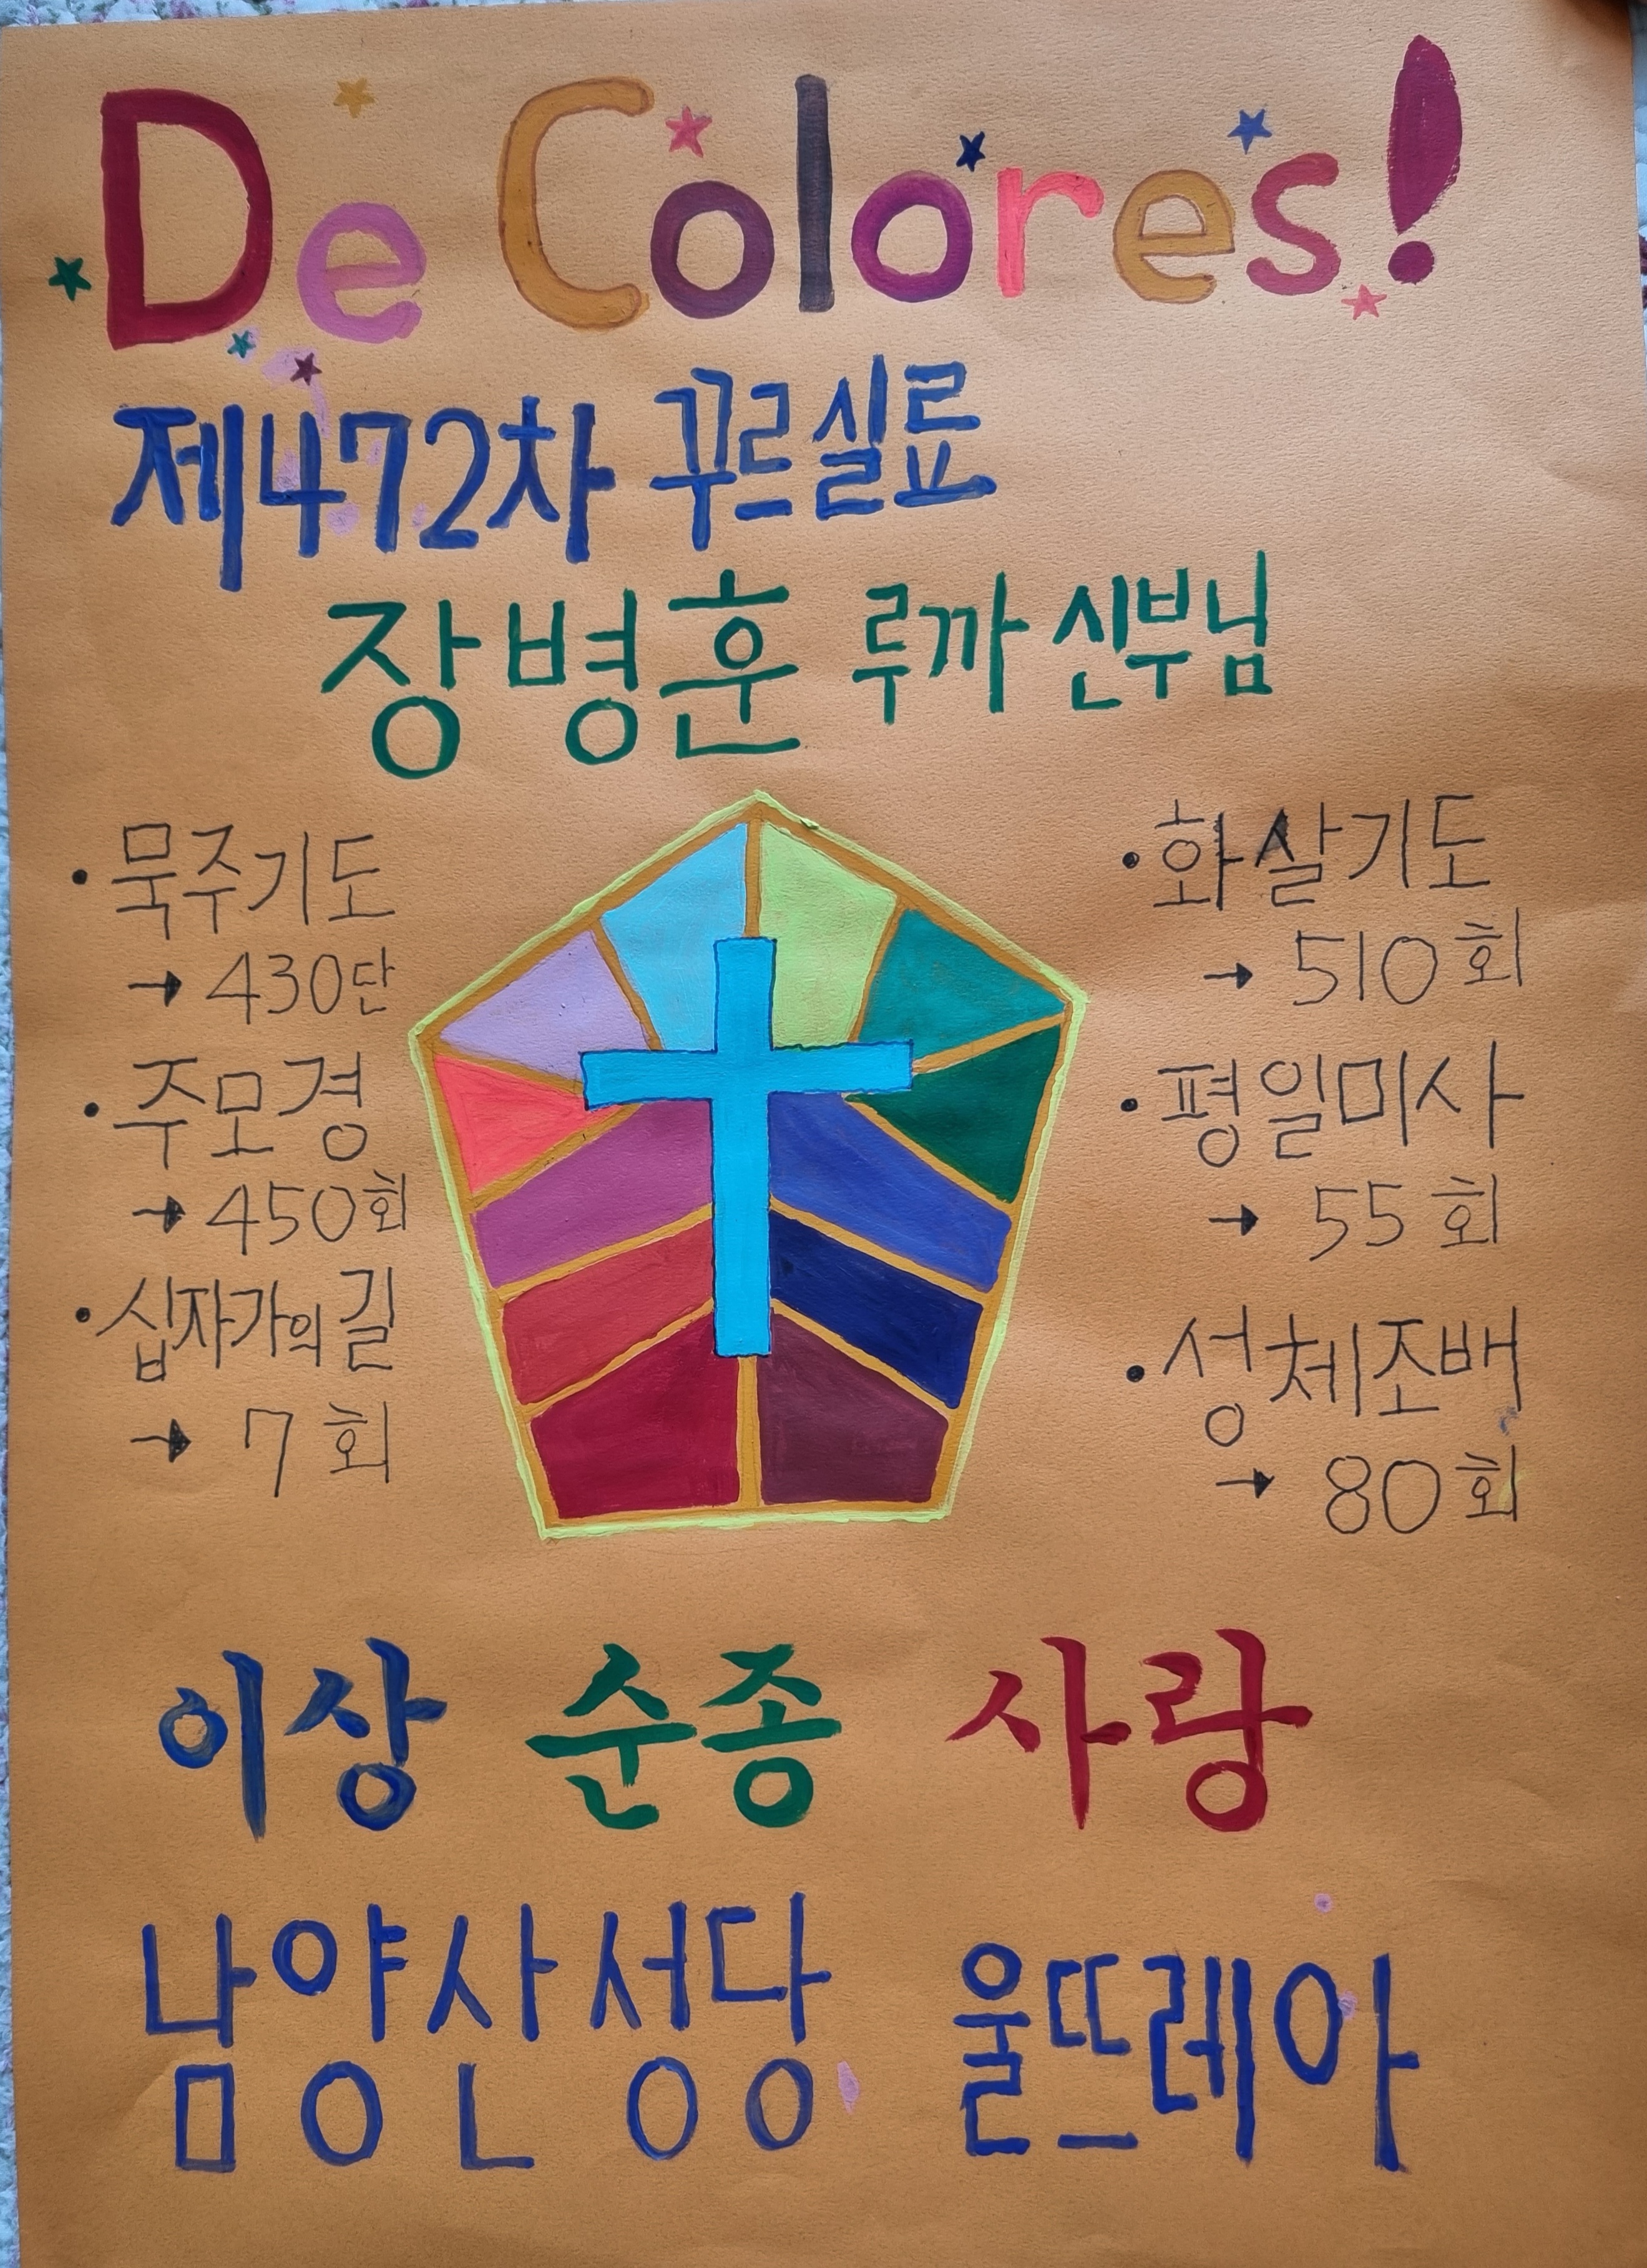 De Colores!
제472차 꾸르실료
장병훈 루까 신부님
• 묵주기도
→ 430단
• 주모경
→ 450회
• 십자가의 길
→ 7회
• 화살기도
→ 510회
• 평일미사
→ 55회
• 성체조배
→ 80회
이상 순종 사랑
남양산성당 울뜨레아